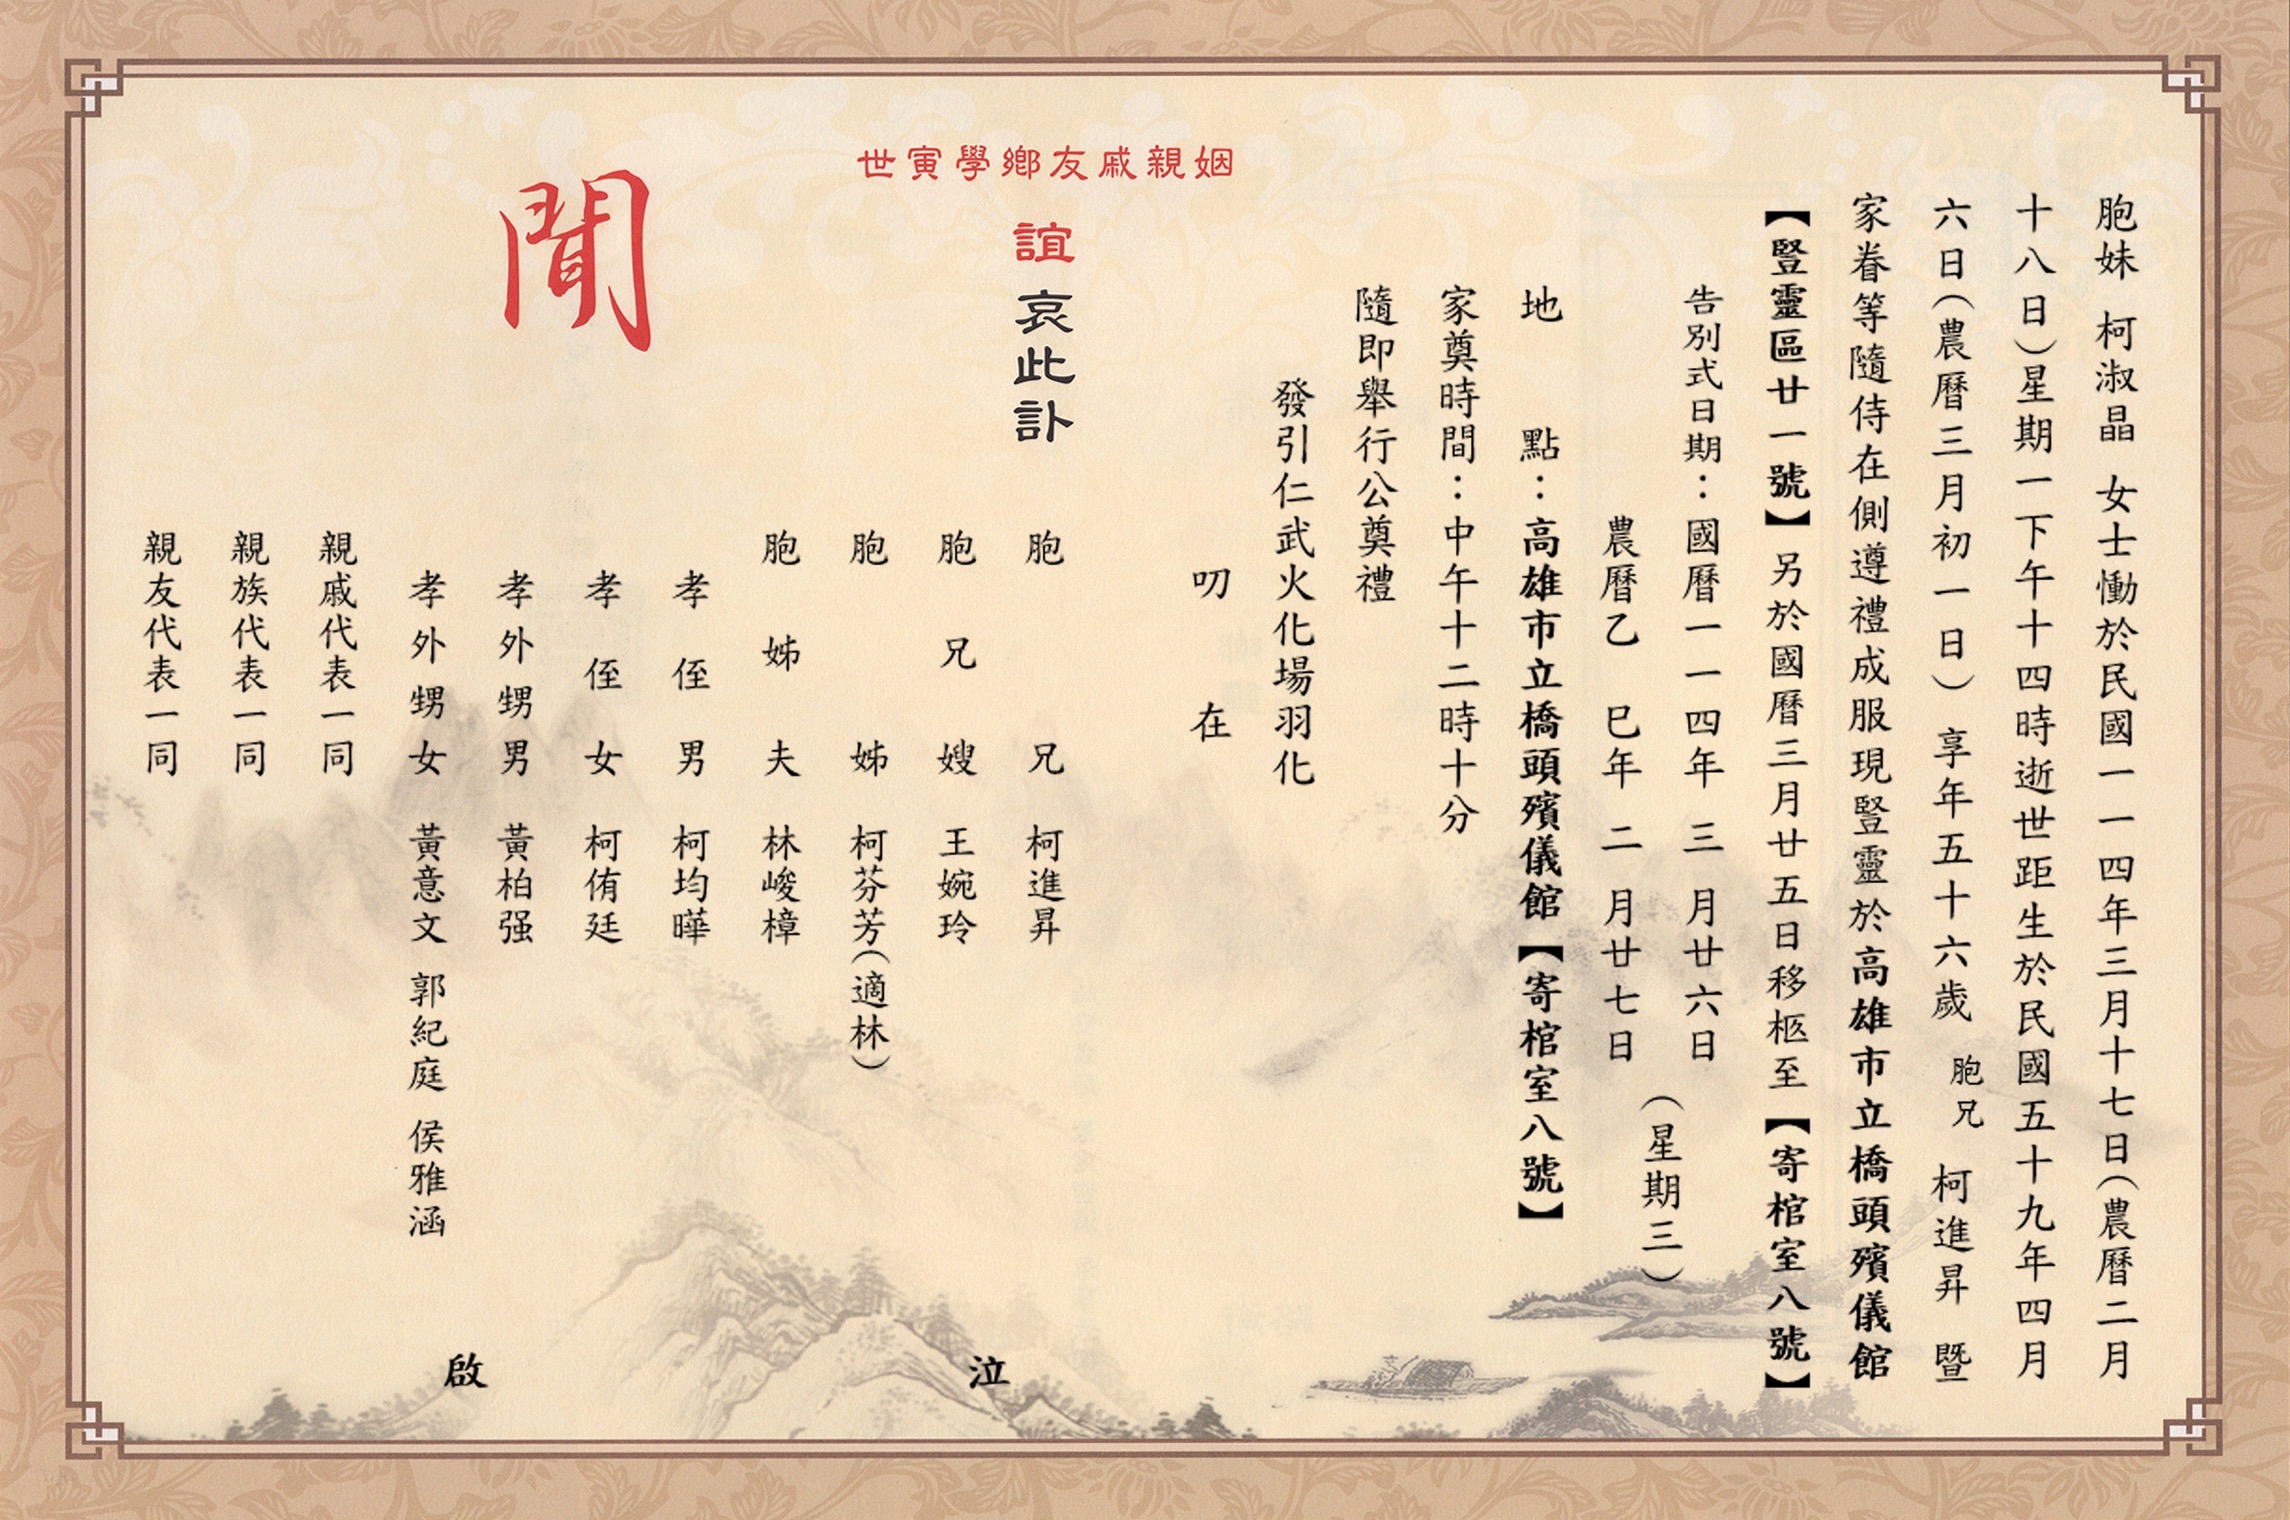 胞妹 柯淑晶 女士慟於民國一一四年三月十七日(農曆二月
十八日)星期一下午十四時逝世距生於民國五十九年四月
六日(農曆三月初一日)享年五十六歲 胞兄 柯進昇 暨
家眷等隨侍在側遵禮成服現豎靈於高雄市立橋頭殯儀館
【豎靈區廿一號】另於國曆三月廿五日移柩至【寄棺室八號】
告別式日期：國曆一一四年 三 月廿六日
農曆乙 巳年 二 月廿七日
(星期三)
地 點：高雄市立橋頭殯儀館【寄棺室八號】
家奠時間：中午十二時十分
隨即舉行公奠禮
發引仁武火化場羽化
叨 在
姻親戚友鄉學寅世
誼 哀此訃
聞
胞兄 柯進昇
胞兄嫂 王婉玲
胞姊 柯芬芳(適林)
胞姊夫 林峻樟
孝侄男 柯均曄
孝侄女 柯侑廷
孝外甥男 黃柏强
孝外甥女 黃意文 郭紀庭 侯雅涵
親戚代表一同
親族代表一同
親友代表一同
泣 啟